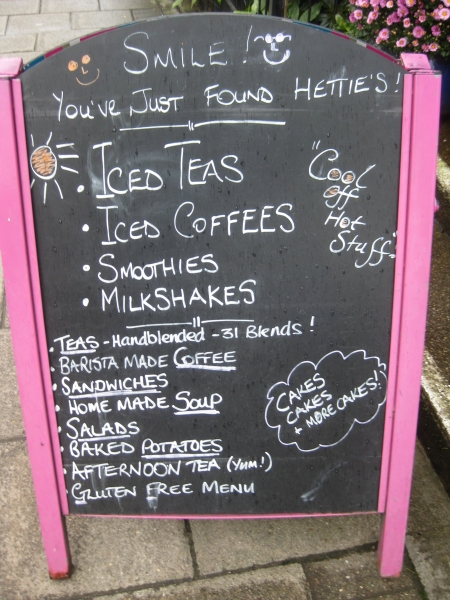 SMILE!
YOU'VE JUST FOUND HETTIE'S!
• ICED TEAS
• ICED COFFEES
• SMOOTHIES
• MILKSHAKES
"Cool
off
Hot
Stuff"
• TEAS - Handblended - 31 Blends!
• BARISTA MADE COFFEE
• SANDWICHES
• HOME MADE SOUP
• SALADS
• BAKED POTATOES
• AFTERNOON TEA (Yum!)
• GLUTEN FREE MENU
CAKES
CAKES
+ MORE CAKES!